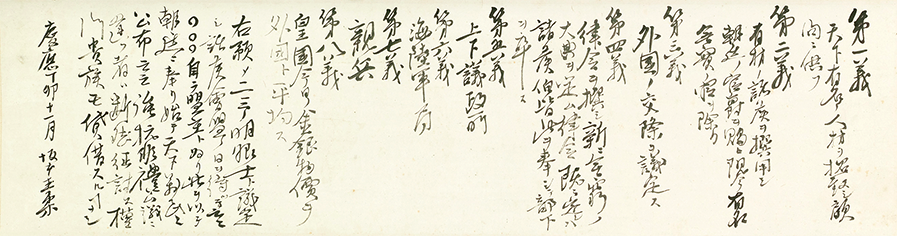 第一義
天下有名ノ人材を招致し顧
問ニ供フ
第二義
有材ノ諸侯ヲ撰用し
朝廷ノ官爵ヲ賜ヒ現今有名
無實ノ官ヲ除ク
第三義
外国ノ交際ヲ議定ス
第四義
律令ヲ撰し新ニ無窮ノ
大典ヲ定ム律令既ニ定レハ
諸侯伯皆此ヲ奉し部下
ヲ率ス
第五義
上下議政所
第六義
海陸軍局
第七義
親兵
第八義
皇国今日ノ金銀物價ヲ
外国ト平均ス
右預メ二三ノ明眼士ト議定
し諸侯會盟ノ日ヲ待ツテ云云
〇〇〇自ラ盟主ト為り此ヲ以テ
朝廷ニ奉り始テ天下萬民ニ
公布云云強抗非禮公議ニ
違フ者ハ断然征討ス權
門貴族モ貸借スルヿなし
慶應丁卯十一月 坂本直柔